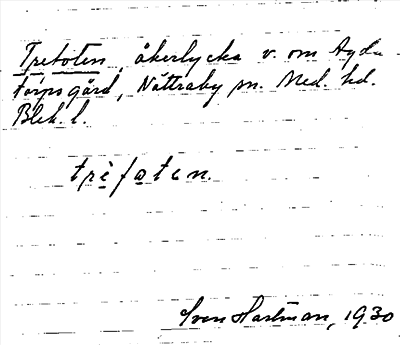 Trefoten, åkerlycka v. om Agda
Törps gård, Nättraby sn. Med. hd.
Blek. l.
trèfoten.
Sven Hartman, 1930